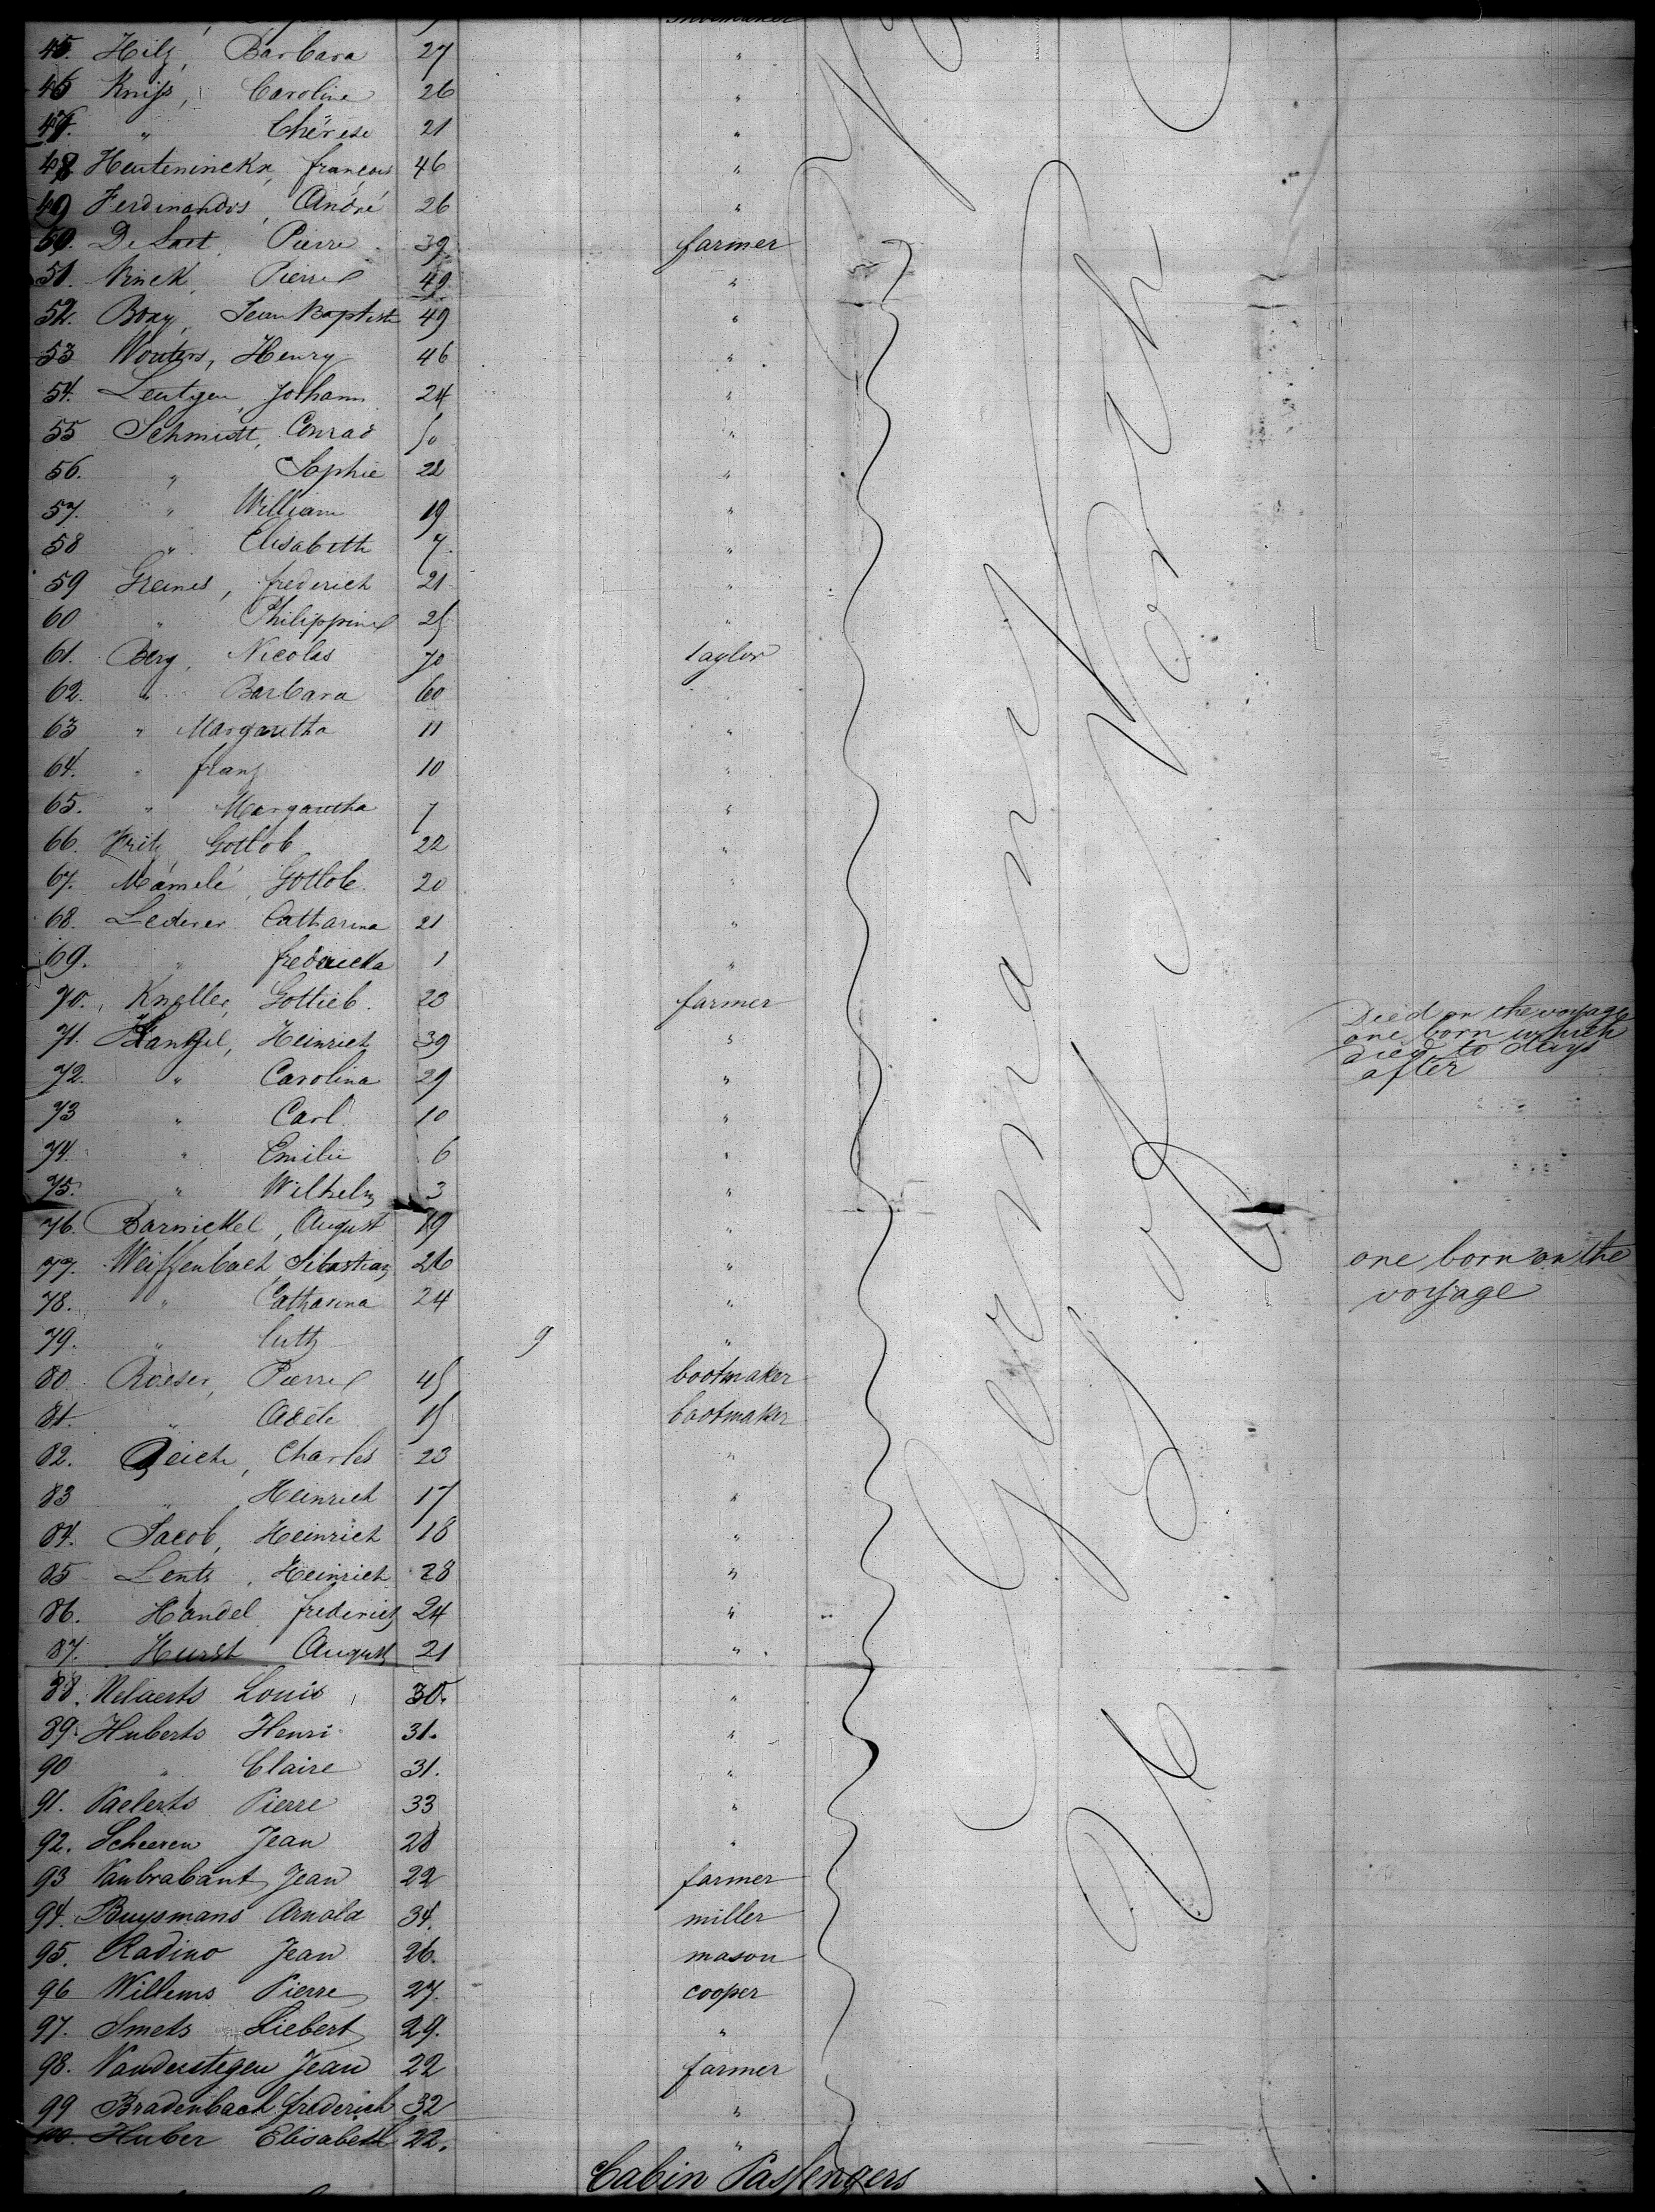 shoemaker
45. Hilz, Barbara 27 "
46 Kniss, Caroline 26 "
47. " Thérèse 21 "
48 Heuteninckx, françois 46 "
49 Ferdinandos, André 26 "
50. De Laet, Pierre 39 farmer
51. Vinck, Pierre 49 "
52. Boxy, Jean Baptiste 49 "
53 Wouters, Henry 46 "
54. Leutgen, Johann 24 "
55 Schmidt, Conrad 50 "
56. " Sophie 22 "
57. " William 19 "
58 " Elisabeth 7. "
59 Greines, frederich 21 "
60 " Philippine 25 "
61. Berg, Nicolas 70 taylor
62. " Barbara 60 "
63 " Margaretha 11 "
64. " franz 10 "
65. " Margaretha 7 "
66. Fritz, Gottlob 22 "
67. Mámelé, Gottlob 20 "
68. Lederer Catharina 21 "
69. " fredericka 1 "
70. Knaller, Gottlieb. 23 farmer
71. Heinrich 39 " Died on the voyage
72. " Carolina 29 " one born which
died to days
after
73 " Carl 10 "
74. " Emilie 6 "
75. " Wilhelm 3 "
76. Barnickel, August 19 "
77. Weiffenbach, Sebastian 26 " one born on the
78. " Catharina 24 " voyage
79. " 9 "
80. Roeser, Pierre 45 bootmaker
81. " Adèle 15 bootmaker
82. Reich, Charles 23 "
83 " Heinrich 17 "
84. Jacob, Heinrich 18 "
85 Lentz, Heinrich 28 "
86. Handel frederich 24 "
87. Hurst August 21 "
88. Nelaerts Louis 30. "
89. Huberts Henri 31. "
90 " Claire 31. "
91. Vaelerts Pierre 33 "
92. Scheeren Jean 28 "
93 Vanbrabant Jean 22 farmer
94. Buysmans Arnold 34. miller
95. Radino Jean 26. mason
96 Willems Pierre 27. cooper
97. Smets Liebert 29. "
98. Vanderstegen Jean 22 farmer
99 Bradenbach frederich 32 "
100. Huber Elisabeth 22. "
Cabin Passengers
Germany